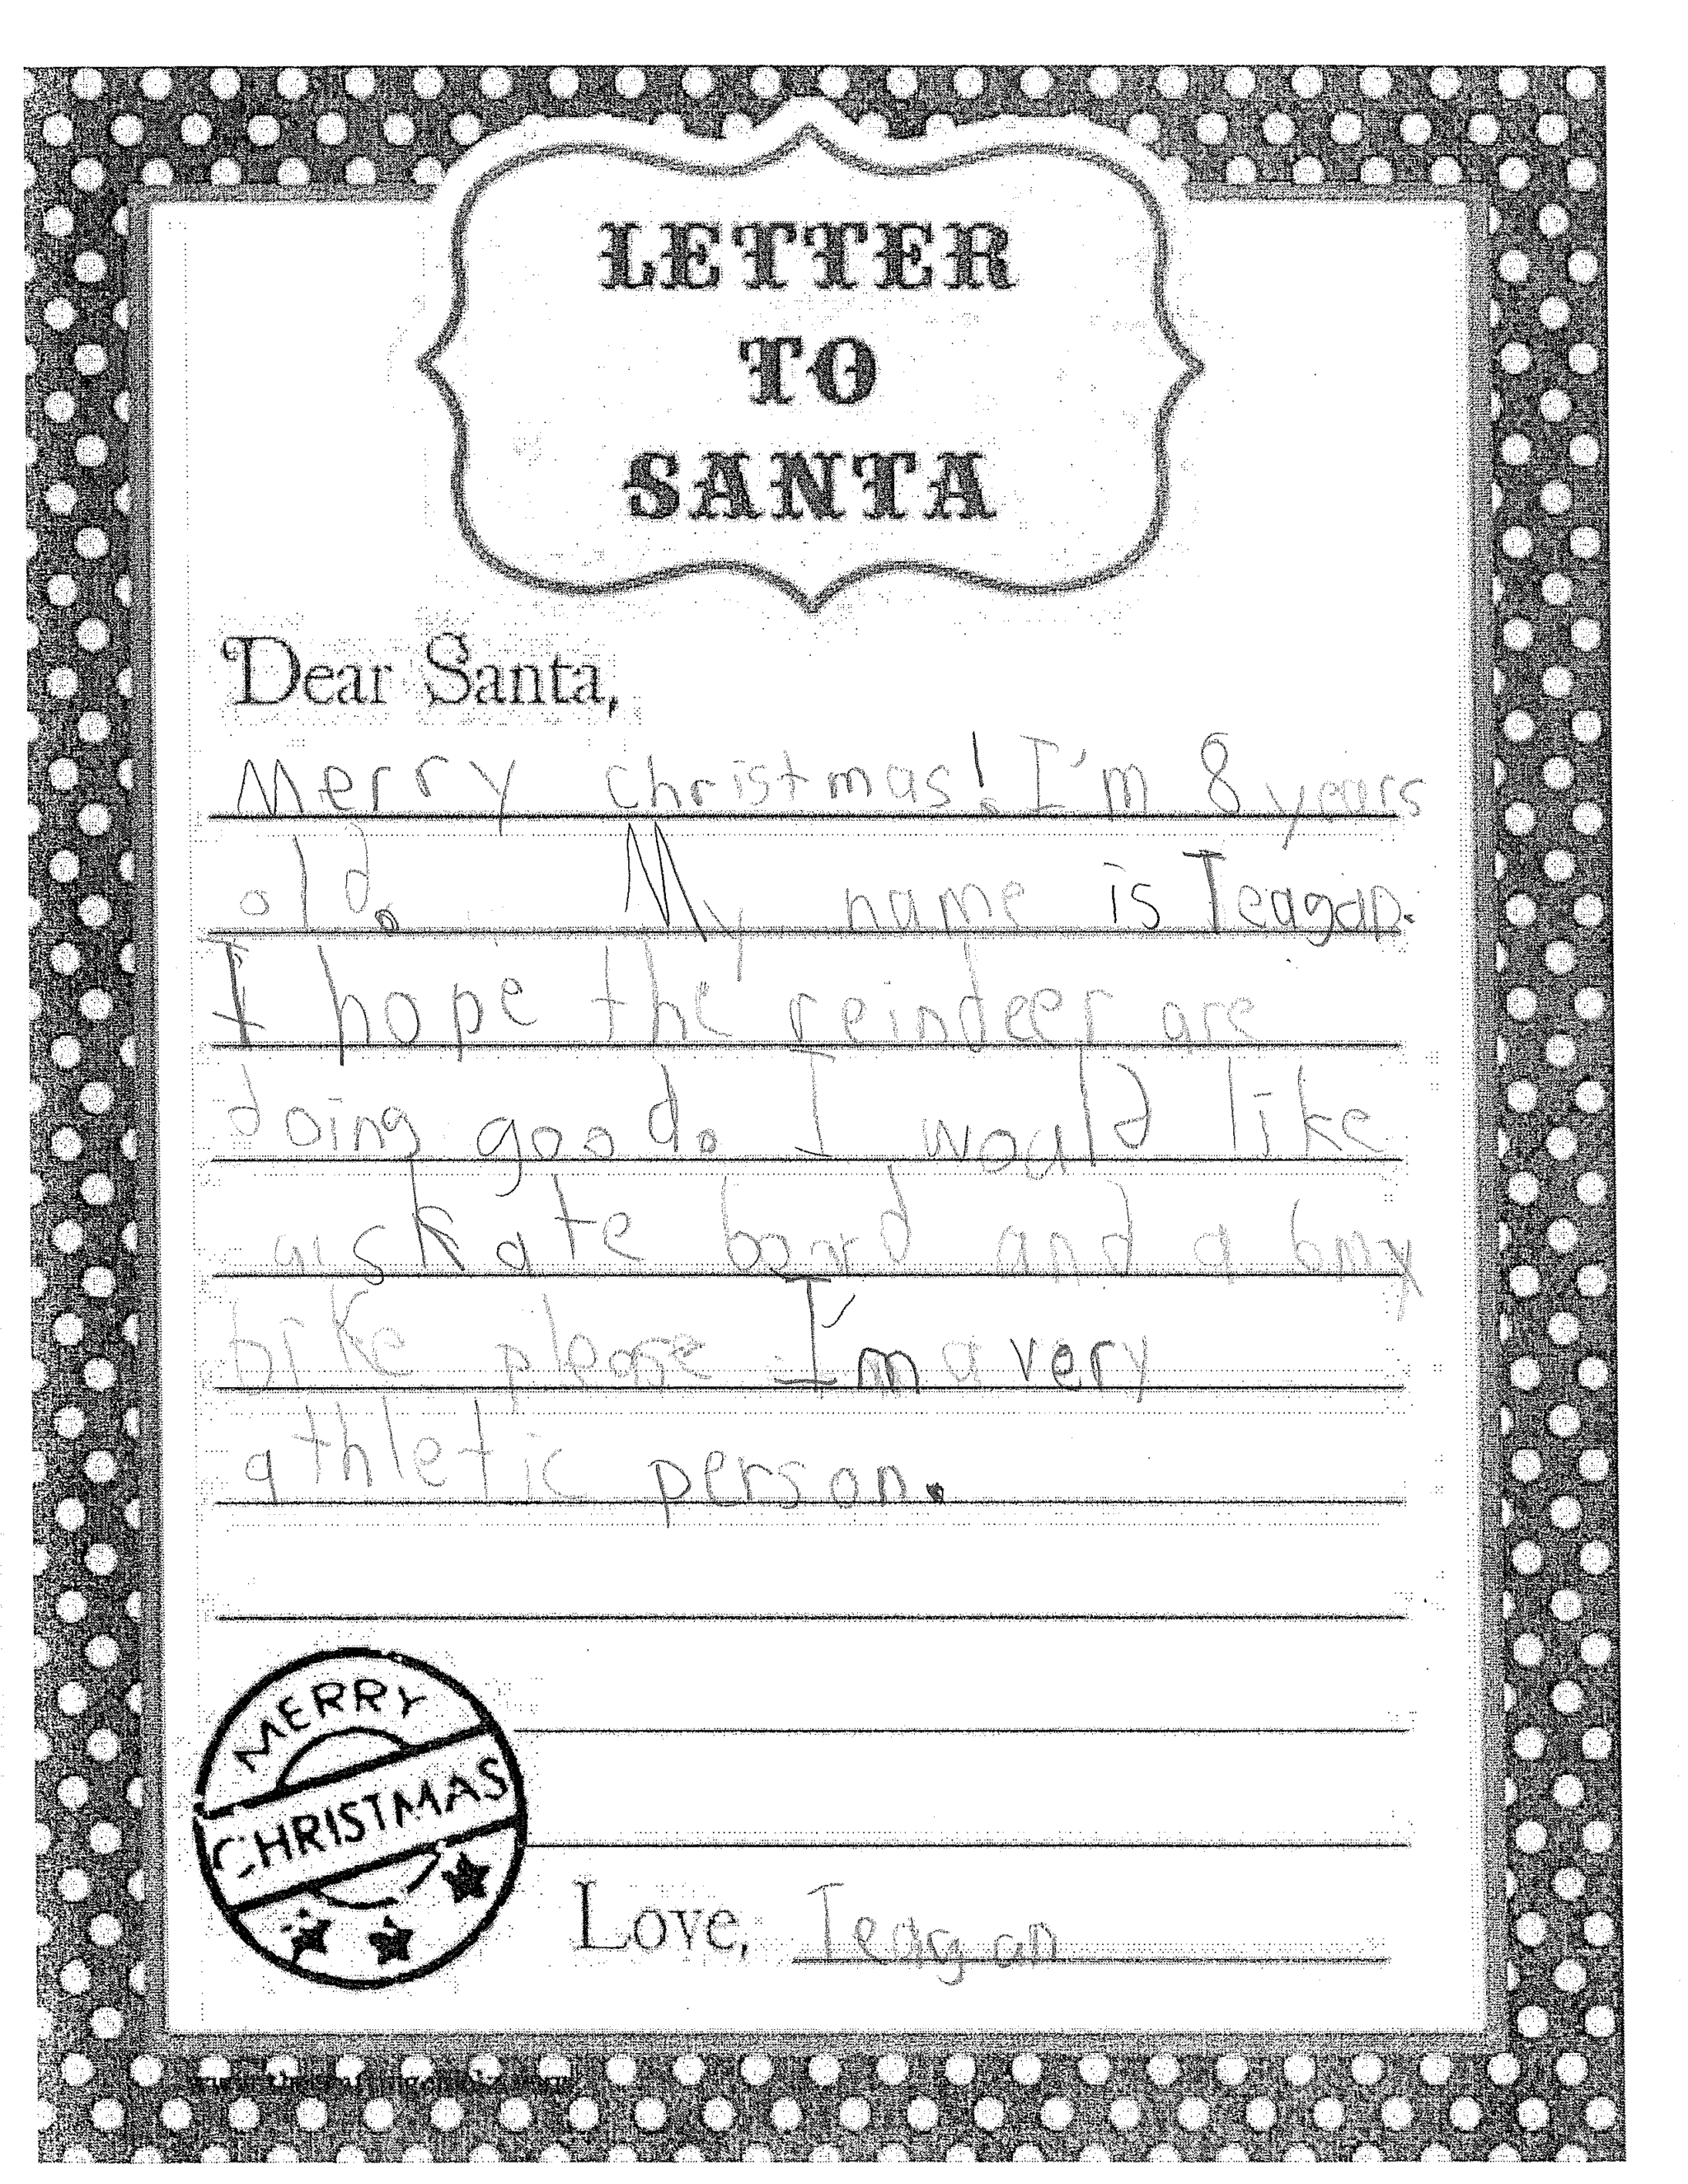 LETTER
TO
SANTA
Dear Santa,
Merry christmas! I'm 8 years
old. My name is Teagan.
I hope the reindeer are
doing good. I would like
a skate bord and a bmx
bike please I'm a very
athletic person.
MERRY
CHRISTMAS
Love, Teagan